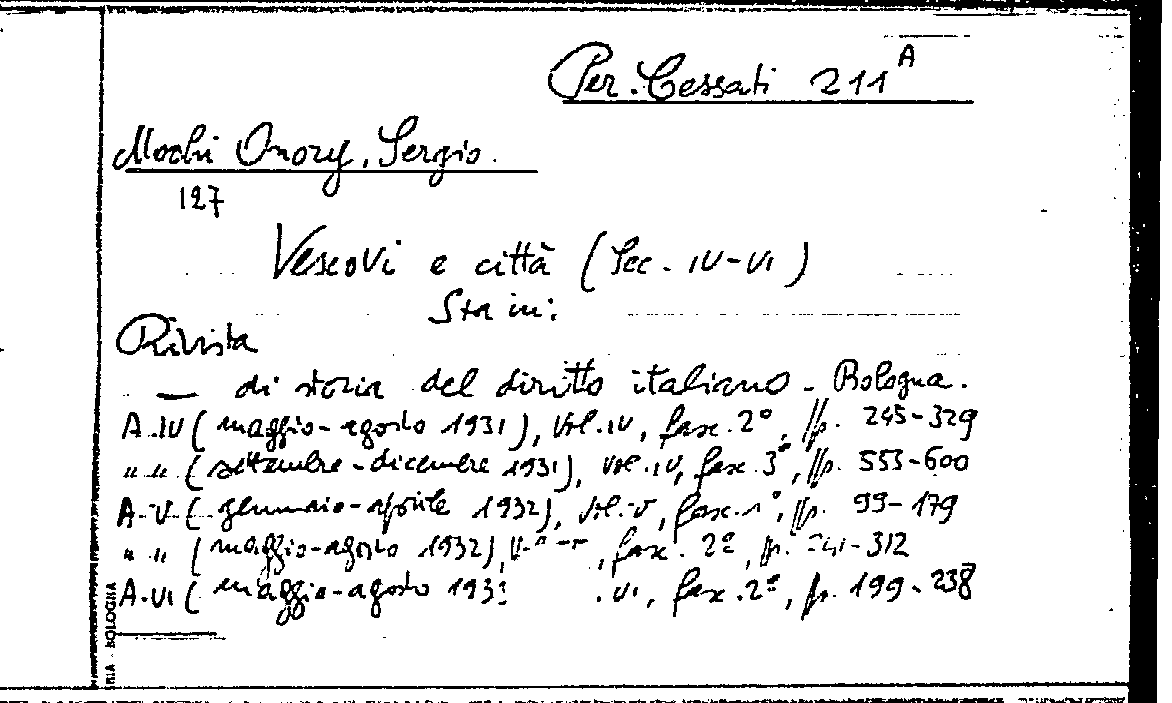 Per. Cessati 211 A
Mochi Onory, Sergio.
127
Vescovi e città (Sec. IV-VI)
Sta in:
Rivista
— di storia del diritto italiano - Bologna.
A. IV (maggio-agosto 1931), vol. IV, fasc. 2°, pp. 245-329
" " (settembre-dicembre 1931), vol. IV, fasc. 3°, pp. 553-600
A. V. (gennaio-aprile 1932), vol. V, fasc. 1°, pp. 99-179
" " (maggio-agosto 1932), fasc. 2°, pp. -312
A. VI (maggio-agosto 193 . VI, fasc. 2°, pp. 199-238
BOLOGNA